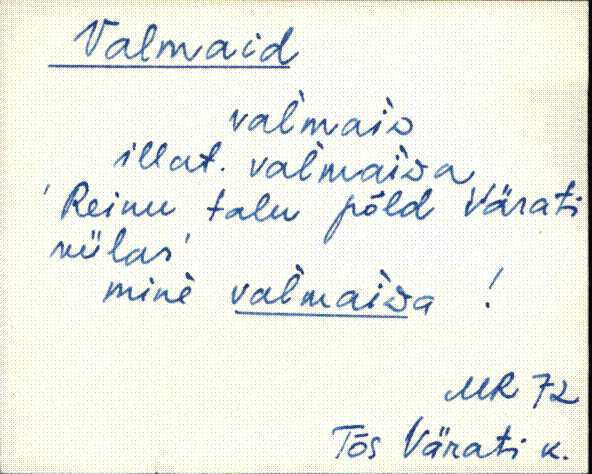 Valmaid
val̀maiD
illat. val̀maiDa
'Reinu talu põld Värati
külas'
minè val̀maiDa !
MR 72
Tõs Värati k.